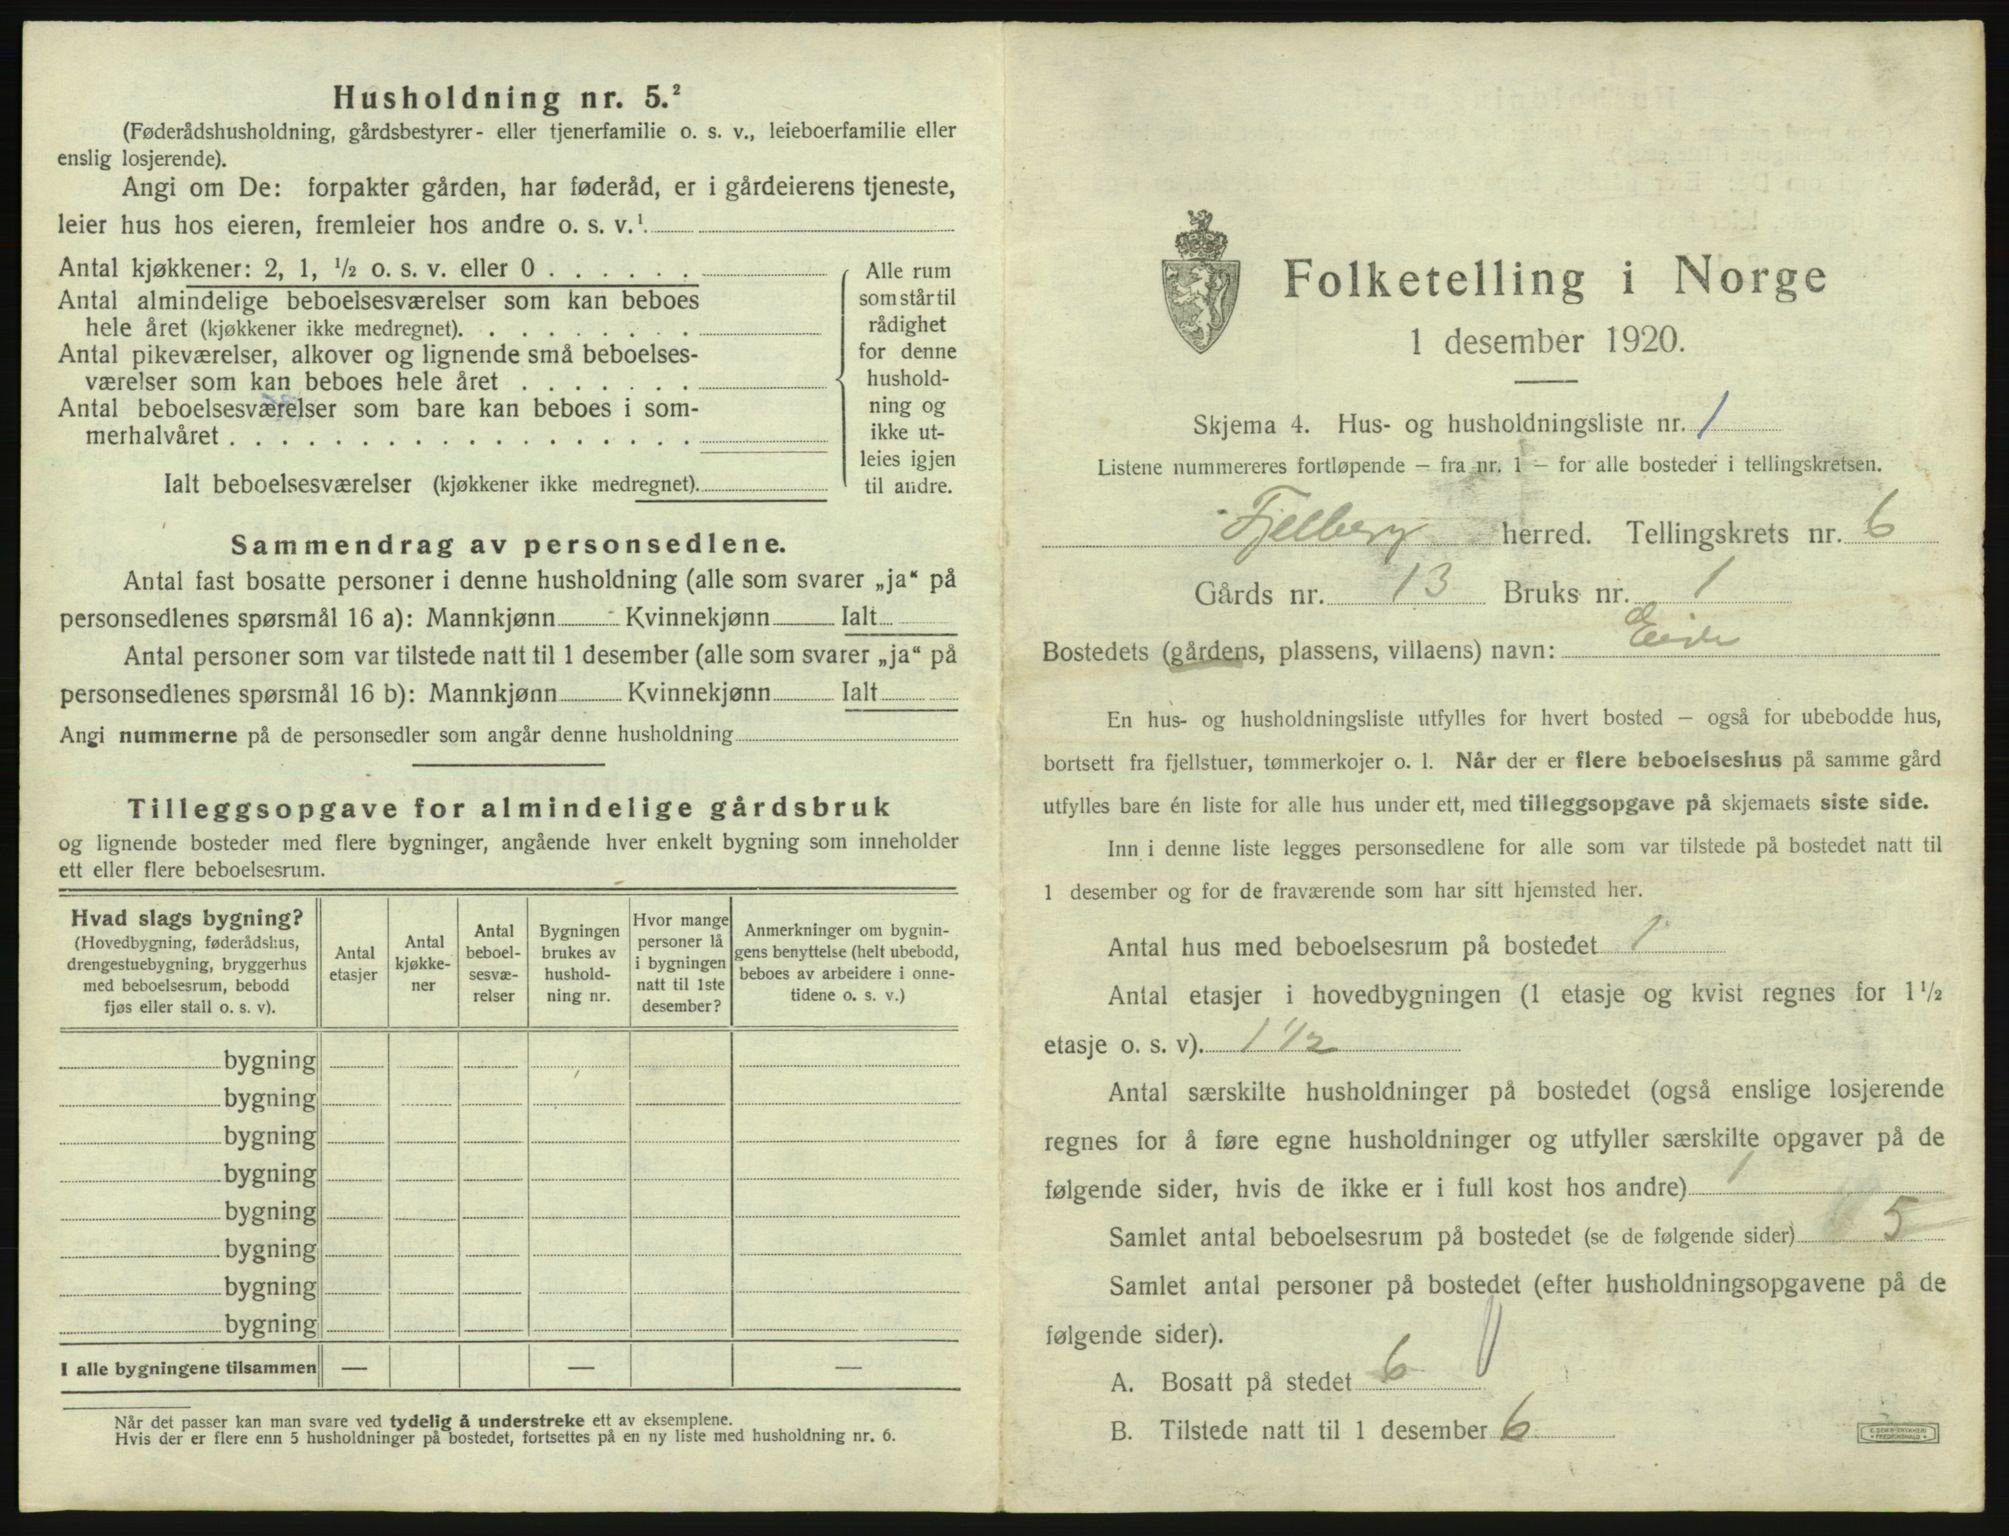 Husholdning nr. 5.²
(Føderådshusholdning, gårdsbestyrer- eller tjenerfamilie o. s. v., leieboerfamilie eller
enslig losjerende).
Angi om De: forpakter gården, har føderåd, er i gårdeierens tjeneste,
leier hus hos eieren, fremleier hos andre o. s. v.¹
Antal kjøkkener: 2, 1, ½ o. s. v. eller 0 . . . . . .
Antal almindelige beboelsesværelser som kan beboes
hele året (kjøkkener ikke medregnet). . . . . . . . .
Antal pikeværelser, alkover og lignende små beboelses-
værelser som kan beboes hele året . . . . . . .
Antal beboelsesværelser som bare kan beboes i som-
merhalvåret . . . . . . . . . . . . . . . . . .
Ialt beboelsesværelser (kjøkkener ikke medregnet).
Alle rum
som står til
rådighet
for denne
hushold-
ning og
ikke ut-
leies igjen
til andre.
Sammendrag av personsedlene.
Antal fast bosatte personer i denne husholdning (alle som svarer „ja“ på
personsedlenes spørsmål 16 a): Mannkjønn Kvinnekjønn Ialt
Antal personer som var tilstede natt til 1 desember (alle som svarer „ja“ på
personsedlenes spørsmål 16 b): Mannkjønn Kvinnekjønn Ialt
Angi nummerne på de personsedler som angår denne husholdning
Tilleggsopgave for almindelige gårdsbruk
og lignende bosteder med flere bygninger, angående hver enkelt bygning som inneholder
ett eller flere beboelsesrum.
Hvad slags bygning?
(Hovedbygning, føderådshus,
drengestuebygning, bryggerhus
med beboelsesrum, bebodd
fjøs eller stall o. s. v).
Antal
etasjer
Antal
kjøkke-
ner
Antal
beboel-
sesvæ-
relser
Bygningen
brukes av
hushold-
ning nr.
Hvor mange
personer lå
i bygningen
natt til 1ste
desember?
Anmerkninger om bygnin-
gens benyttelse (helt ubebodd,
beboes av arbeidere i onne-
tidene o. s. v.)
bygning
bygning
bygning
bygning
bygning
bygning
bygning
bygning
I alle bygningene tilsammen — — —
Når det passer kan man svare ved tydelig å understreke ett av eksemplene.
Hvis der er flere enn 5 husholdninger på bostedet, fortsettes på en ny liste med husholdning nr. 6.
Folketelling i Norge
1 desember 1920.
Skjema 4. Hus- og husholdningsliste nr. 1
Listene nummereres fortløpende — fra nr. 1 — for alle bosteder i tellingskretsen.
Fjelberg herred. Tellingskrets nr. 6
Gårds nr. 13 Bruks nr. 1
Bostedets (gårdens, plassens, villaens) navn: Eide
En hus- og husholdningsliste utfylles for hvert bosted — også for ubebodde hus,
bortsett fra fjellstuer, tømmerkojer o. l. Når der er flere beboelseshus på samme gård
utfylles bare én liste for alle hus under ett, med tilleggsopgave på skjemaets siste side.
Inn i denne liste legges personsedlene for alle som var tilstede på bostedet natt til
1 desember og for de fraværende som har sitt hjemsted her.
Antal hus med beboelsesrum på bostedet 1
Antal etasjer i hovedbygningen (1 etasje og kvist regnes for 1½
etasje o. s. v). 1 1/2
Antal særskilte husholdninger på bostedet (også enslige losjerende
regnes for å føre egne husholdninger og utfyller særskilte opgaver på de
følgende sider, hvis de ikke er i full kost hos andre) 1
Samlet antal beboelsesrum på bostedet (se de følgende sider) 5
Samlet antal personer på bostedet (efter husholdningsopgavene på de
følgende sider).
A. Bosatt på stedet 6
B. Tilstede natt til 1 desember 6